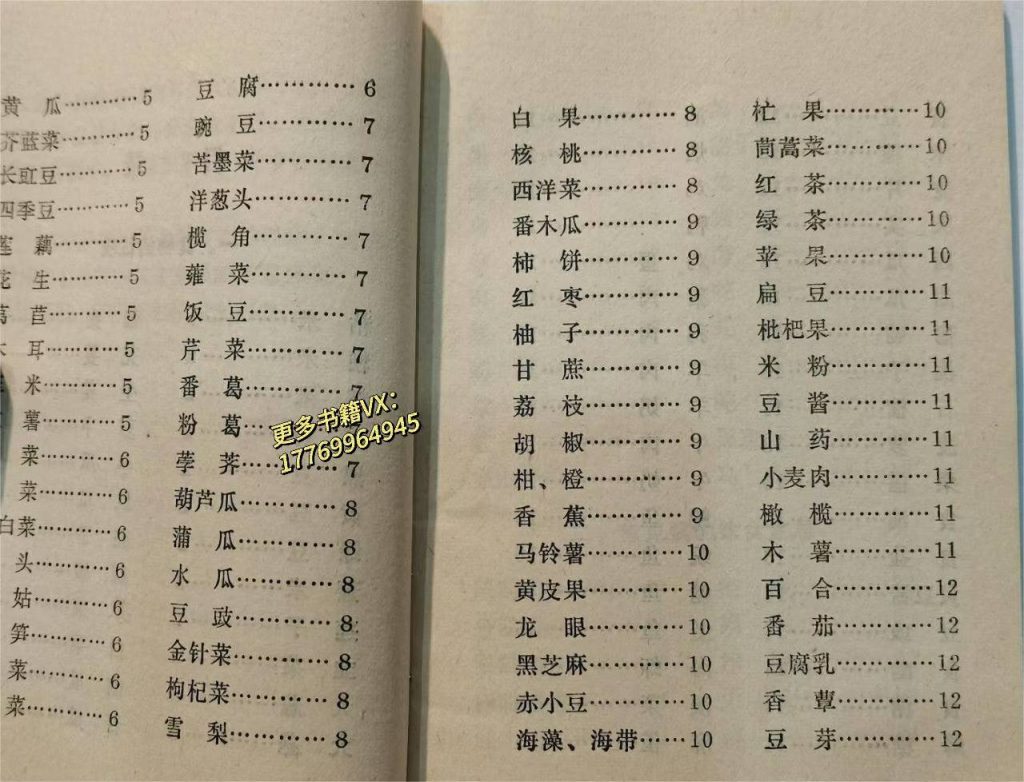 黄 瓜…………5
芥蓝菜…………5
长豇豆…………5
四季豆…………5
藕…………5
花 生…………5
苣…………5
耳…………5
米…………5
薯…………5
菜…………6
菜…………6
白菜…………6
头…………6
姑…………6
笋…………6
菜…………6
菜…………6
豆 腐…………6
豌 豆…………7
苦墨菜…………7
洋葱头…………7
榄 角…………7
蕹 菜…………7
饭 豆…………7
芹 菜…………7
番 葛…………7
粉 葛…………
荸 荠…………7
葫芦瓜…………8
蒲 瓜…………8
水 瓜…………8
豆 豉…………8
金针菜…………8
枸杞菜…………8
雪 梨…………8
更多书籍VX:
17769964945
白 果…………8
核 桃…………8
西洋菜…………8
番木瓜…………9
柿 饼…………9
红 枣…………9
柚 子…………9
甘 蔗…………9
荔 枝…………9
胡 椒…………9
柑、橙…………9
香 蕉…………9
马铃薯…………10
黄皮果…………10
龙 眼…………10
黑芝麻…………10
赤小豆…………10
海藻、海带……10
杧 果…………10
茼蒿菜…………10
红 茶…………10
绿 茶…………10
苹 果…………10
扁 豆…………11
枇杷果…………11
米 粉…………11
豆 酱…………11
山 药…………11
小麦肉…………11
橄 榄…………11
木 薯…………11
百 合…………12
番 茄…………12
豆腐乳…………12
香 蕈…………12
豆 芽…………12